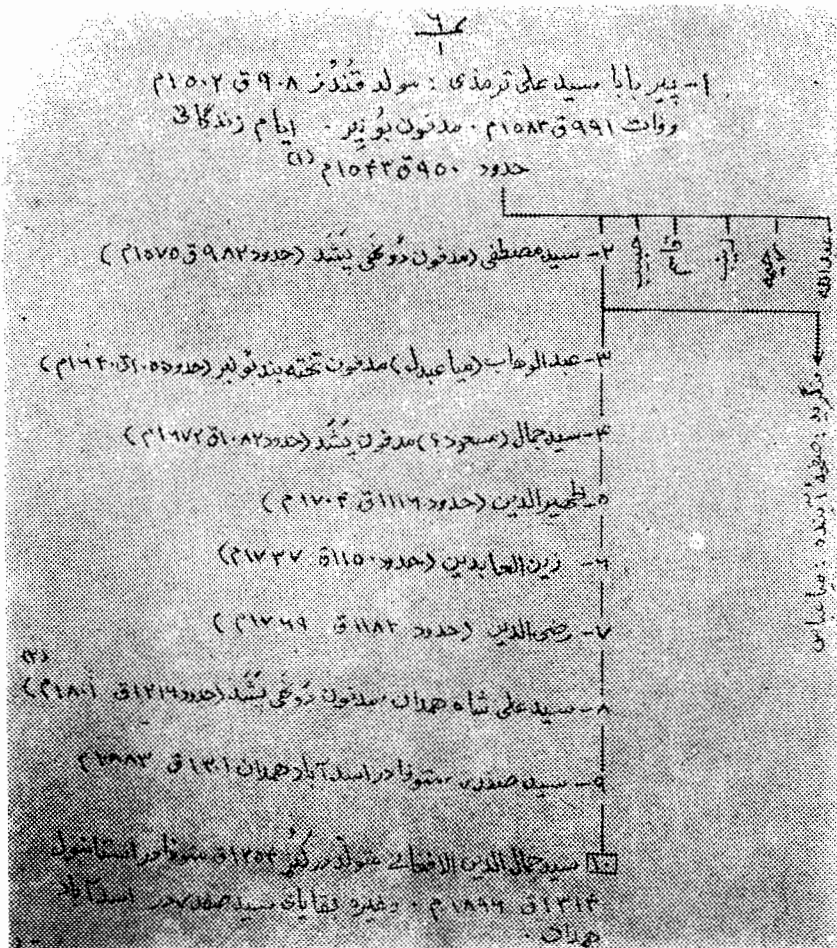 ۶
۱
۱- پیر بابا سید علی ترمذی : مولد قُندُز ۹۰۸ ق ۱۵۰۲م
وفات ۹۹۱ ق ۱۵۸۳م . مدفون بونیر . ایام زندگانی
حدود ۹۵۰ ق ۱۵۴۳م (۱)
عبدالله
۲- سید مصطفی (مدفون دُوغَی پَشَد (حدود ۹۸۲ ق ۱۵۷۵م )
۳- عبدالوهاب (میا عبدل) مدفون تخته بند بونیر (حدود ۱۰۵۰ق ۱۶۴۰م )
۴- سید جمال (مسعود ؟) مدفون پَشَد (حدود ۱۰۸۲ق ۱۶۷۲م )
۵- ظهیرالدین (حدود ۱۱۱۶ق ۱۷۰۴م )
۶- زین العابدین (حدود ۱۱۵۰ق ۱۷۳۷م)
۷- رضی الدین (حدود ۱۱۸۳ق ۱۷۶۹م )
۸- سید علی شاه همدان مدفون دُوغَی پَشَد (حدود ۱۲۱۶ق ۱۸۰۱م) (۲)
۹- سید صفدر، متوفا در اسدآباد همدان ۱۳۰۱ ق ۱۸۸۳م
۱۰ سید جمال الدین الافغانی متولد در کُنَر ۱۲۵۴ق متوفا در استانبول
۱۳۱۴ق ۱۸۹۶م . وغیره بقایای سید صفدر در اسدآباد
همدان .
برگردد : صفحهٔ آینده : میا عباس